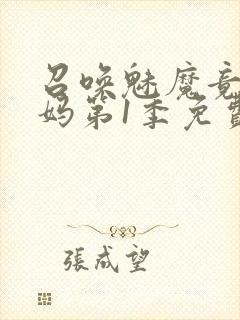 召唤魅魔竟
妈第1季免费
張成望